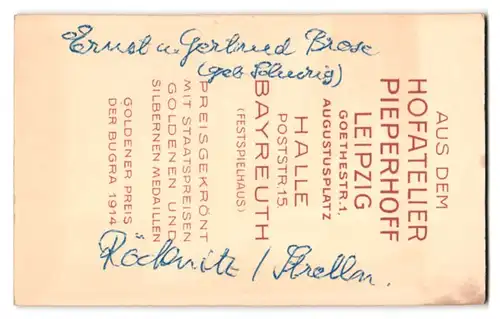 Ernst u. Gertrud Brose
(geb. Schurig)
AUS DEM
HOFATELIER
PIEPERHOFF
LEIPZIG
GOETHESTR. 1,
AUGUSTUSPLATZ
HALLE
POSTSTR. 15.
BAYREUTH
(FESTSPIELHAUS)
PREISGEKRÖNT
MIT STAATSPREISEN
GOLDENEN UND
SILBERNEN MEDAILLEN
GOLDENER PREIS
DER BUGRA 1914
Röcknitz / Strelln.